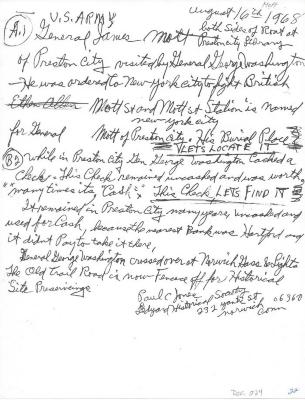 U.S. ARMY August 16th 1968
Mott
A.1 General James Mott both sides of Road at
Preston City Library
of Preston City visited by General George Washington
He was ordered to New York City to fight British
Ethan Allen Mott St and Mott St Station is named
New York City
for General Mott of Preston City. His Burial Place
LETS LOCATE IT
B2 while in Preston City Gen. George Washington Cashed a
Check. This Check remained uncashed and was worth
many times its "Cash". This Check LETS FIND IT
It remained in Preston City many years uncashed and
used for Cash, because the nearest Bank was Hartford and
it didnt Pay to take it there,
General George Washington crossed over at Norwich
The Old Trail Road is now Fenced off for Historical
Site Preservings
Paul C Jones
Historical Society
232 St 06360
Norwich Conn
Doc. 024 22